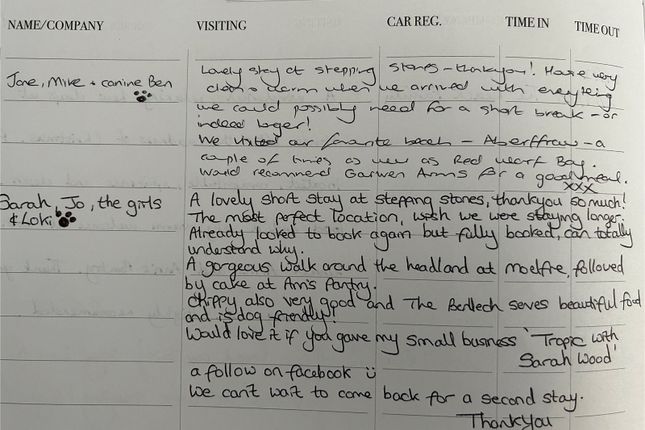 NAME/COMPANY VISITING CAR REG. TIME IN TIME OUT
Jane, Mike + canine Ben
Lovely stay at stepping stones - thankyou! House very
clean & warm when we arrived with everything
we could possibly need for a short break - or
indeed longer!
We visited our favourite beach - Aberffraw - a
couple of times as well as Red Wharf Bay.
Would recommend Garwen Arms for a good meal.
xxx
Sarah, Jo, the girls
& Loki
A lovely short stay at stepping stones, thankyou so much!
The most perfect location, wish we were staying longer.
Already looked to book again but fully booked, can totally
understand why.
A gorgeous walk around the headland at moelfre, followed
by cake at Ann's Pantry.
Chippy also very good and The serves beautiful food
and is dog friendly!
Would love it if you gave my small business 'Tropic with
Sarah Wood'
a follow on facebook ü
We can't wait to come back for a second stay.
Thankyou